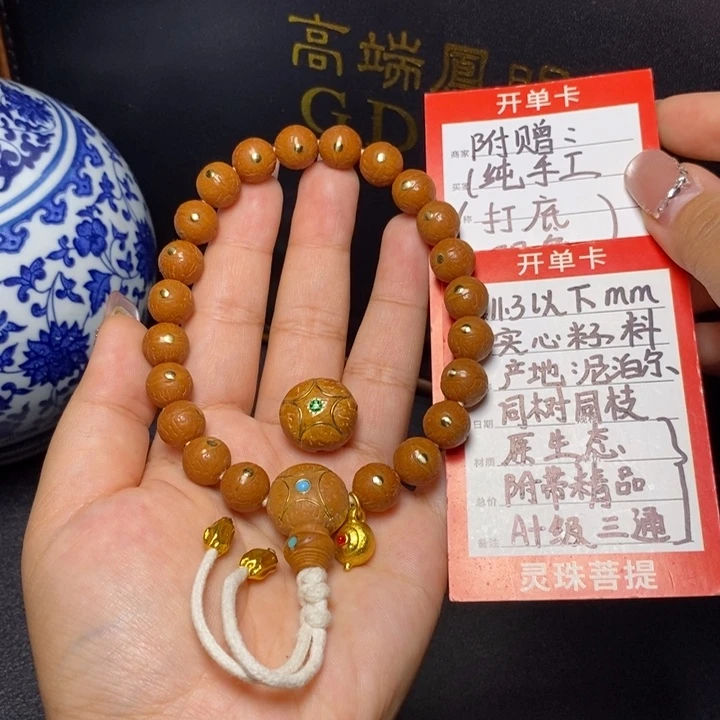 高端鳳眼
GD
开单卡
商家 附赠:
买家 (纯手工
称 (打底)
开单卡
11.3以下mm
实心籽料
产地:尼泊尔、
日期 同树同枝
材质 原生态
总价 附带精品
备注 A+级三通
灵珠菩提